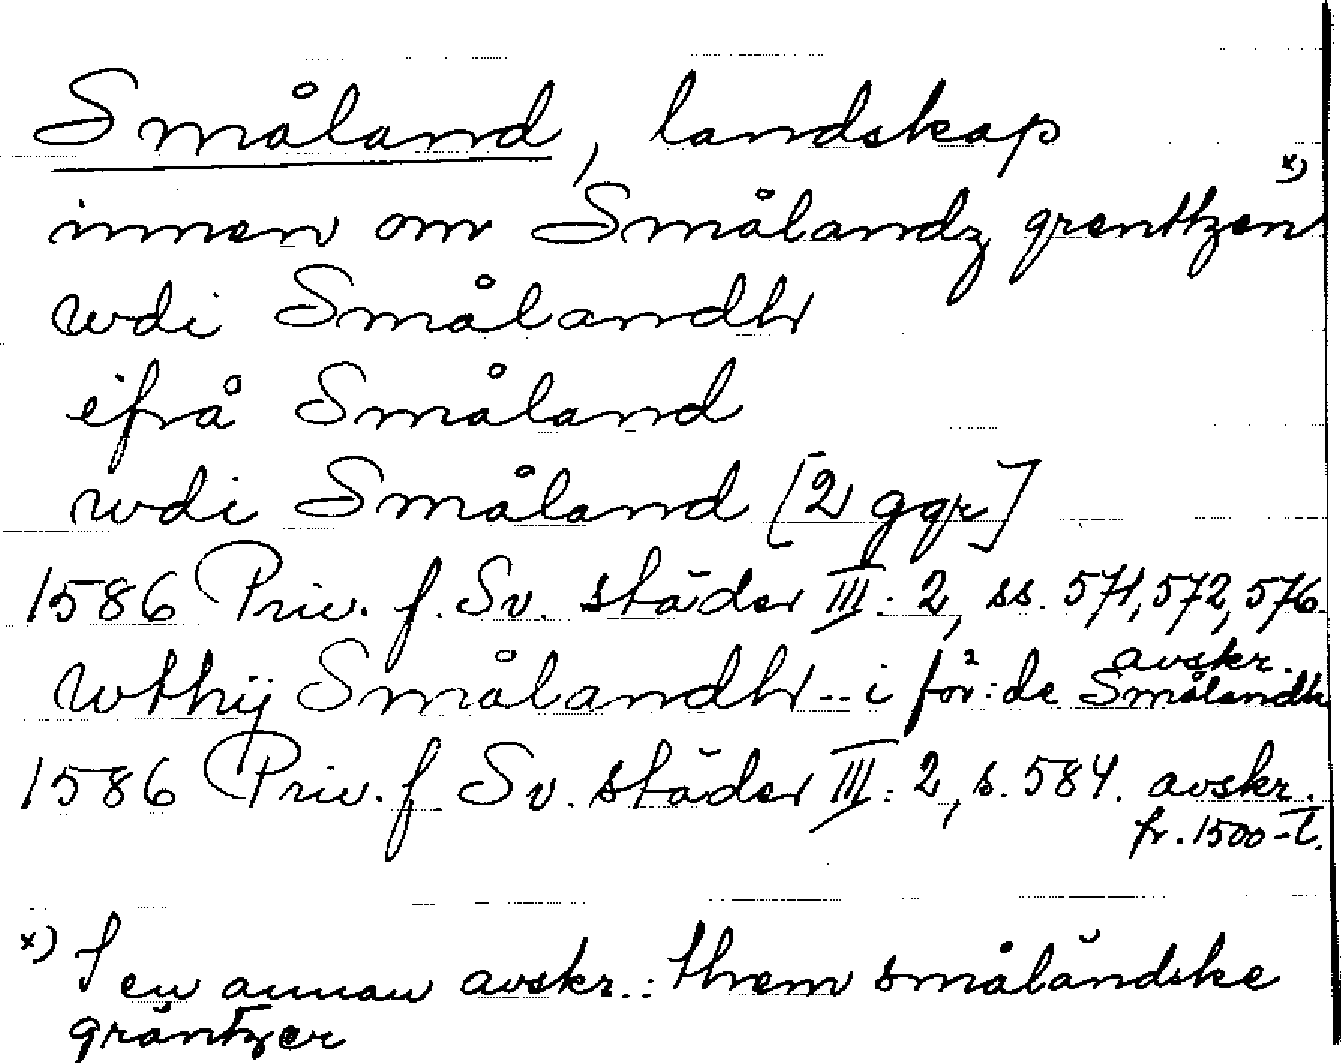 Småland, landskap
innen om Smålandz grenttzen x)
wdi Smålandh
ifrå Småland
wdi Småland [2 ggr]
1586 Priv. f. Sv. städer III: 2, ss. 571, 572, 576.
avskr.
wthij Smålandh -- i för:de Smålandh
1586 Priv. f. Sv. städer III: 2, s. 584. avskr.
fr. 1500-t.
x) I en annan avskr.: them småländske
gräntzer